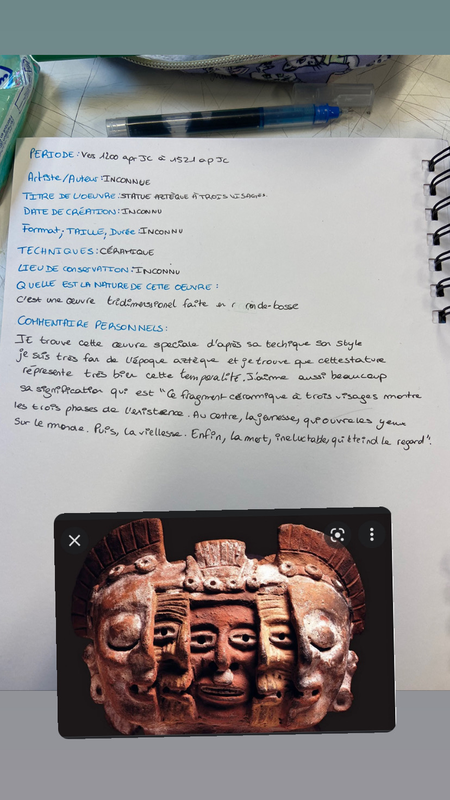 PERIODE : Vers 1200 apr JC à 1521 ap JC
Artiste/Auteur : INCONNUE
TITRE DE L'OEUVRE : STATUE AZTÈQUE À TROIS VISAGES.
DATE DE CRÉATION : INCONNU
Format, TAILLE, Durée : INCONNU
TECHNIQUES : CÉRAMIQUE
LIEU DE CONSERVATION : INCONNU
QUELLE EST LA NATURE DE CETTE OEUVRE :
C'est une œuvre tridimensionel faite en ronde-bosse
COMMENTAIRE PERSONNELS :
JE trouve cette œuvre speciale d'après sa techique son style
je suis très fan de l'époque aztèque et je trouve que cette stature
réprésente très bien cette temporalité. J'aime aussi beaucoup
sa signification qui est "Ce fragment céramique à trois visages montre
les trois phases de l'existence. Au centre, la jeunesse, qui ouvre les yeux
sur le monde. Puis, la viellesse. Enfin, la mort, ineluctable, qui éteind le regard".